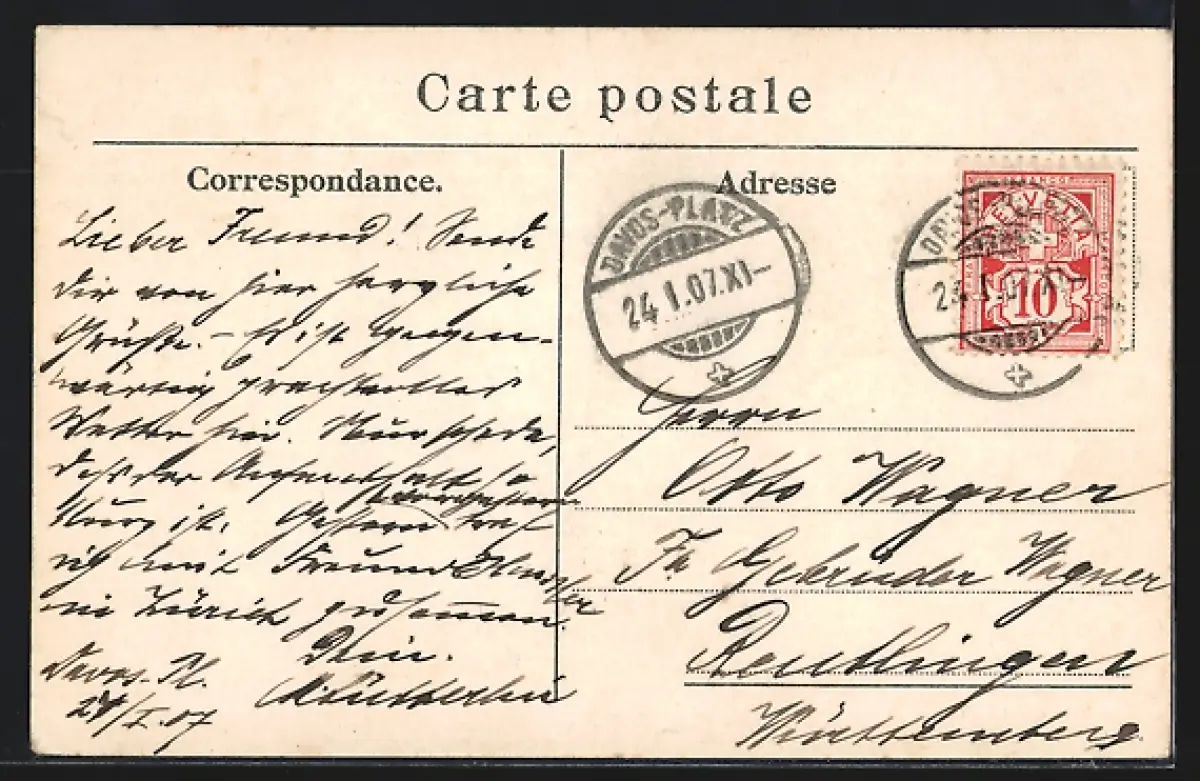 Carte postale
Correspondance.
Adresse
Lieber Freund! Sende
Dir von hier herzliche
Grüße. – Es ist gegen-
wärtig prachtvolles
Wetter hier. Nur schade,
daß der Aufenthalt so
kurz ist. Gestern traf
ich mit Freund
in Zürich zusammen.
Dein.
Davos-Pl.
24/I.07
DAVOS-PLATZ
24.I.07.XI–
DAVOS
24.I.07.XI
FRANCO
HELVETIA
10
Herrn
Otto Wagner
Fa Gebrüder Wagner
Reutlingen
Württemberg